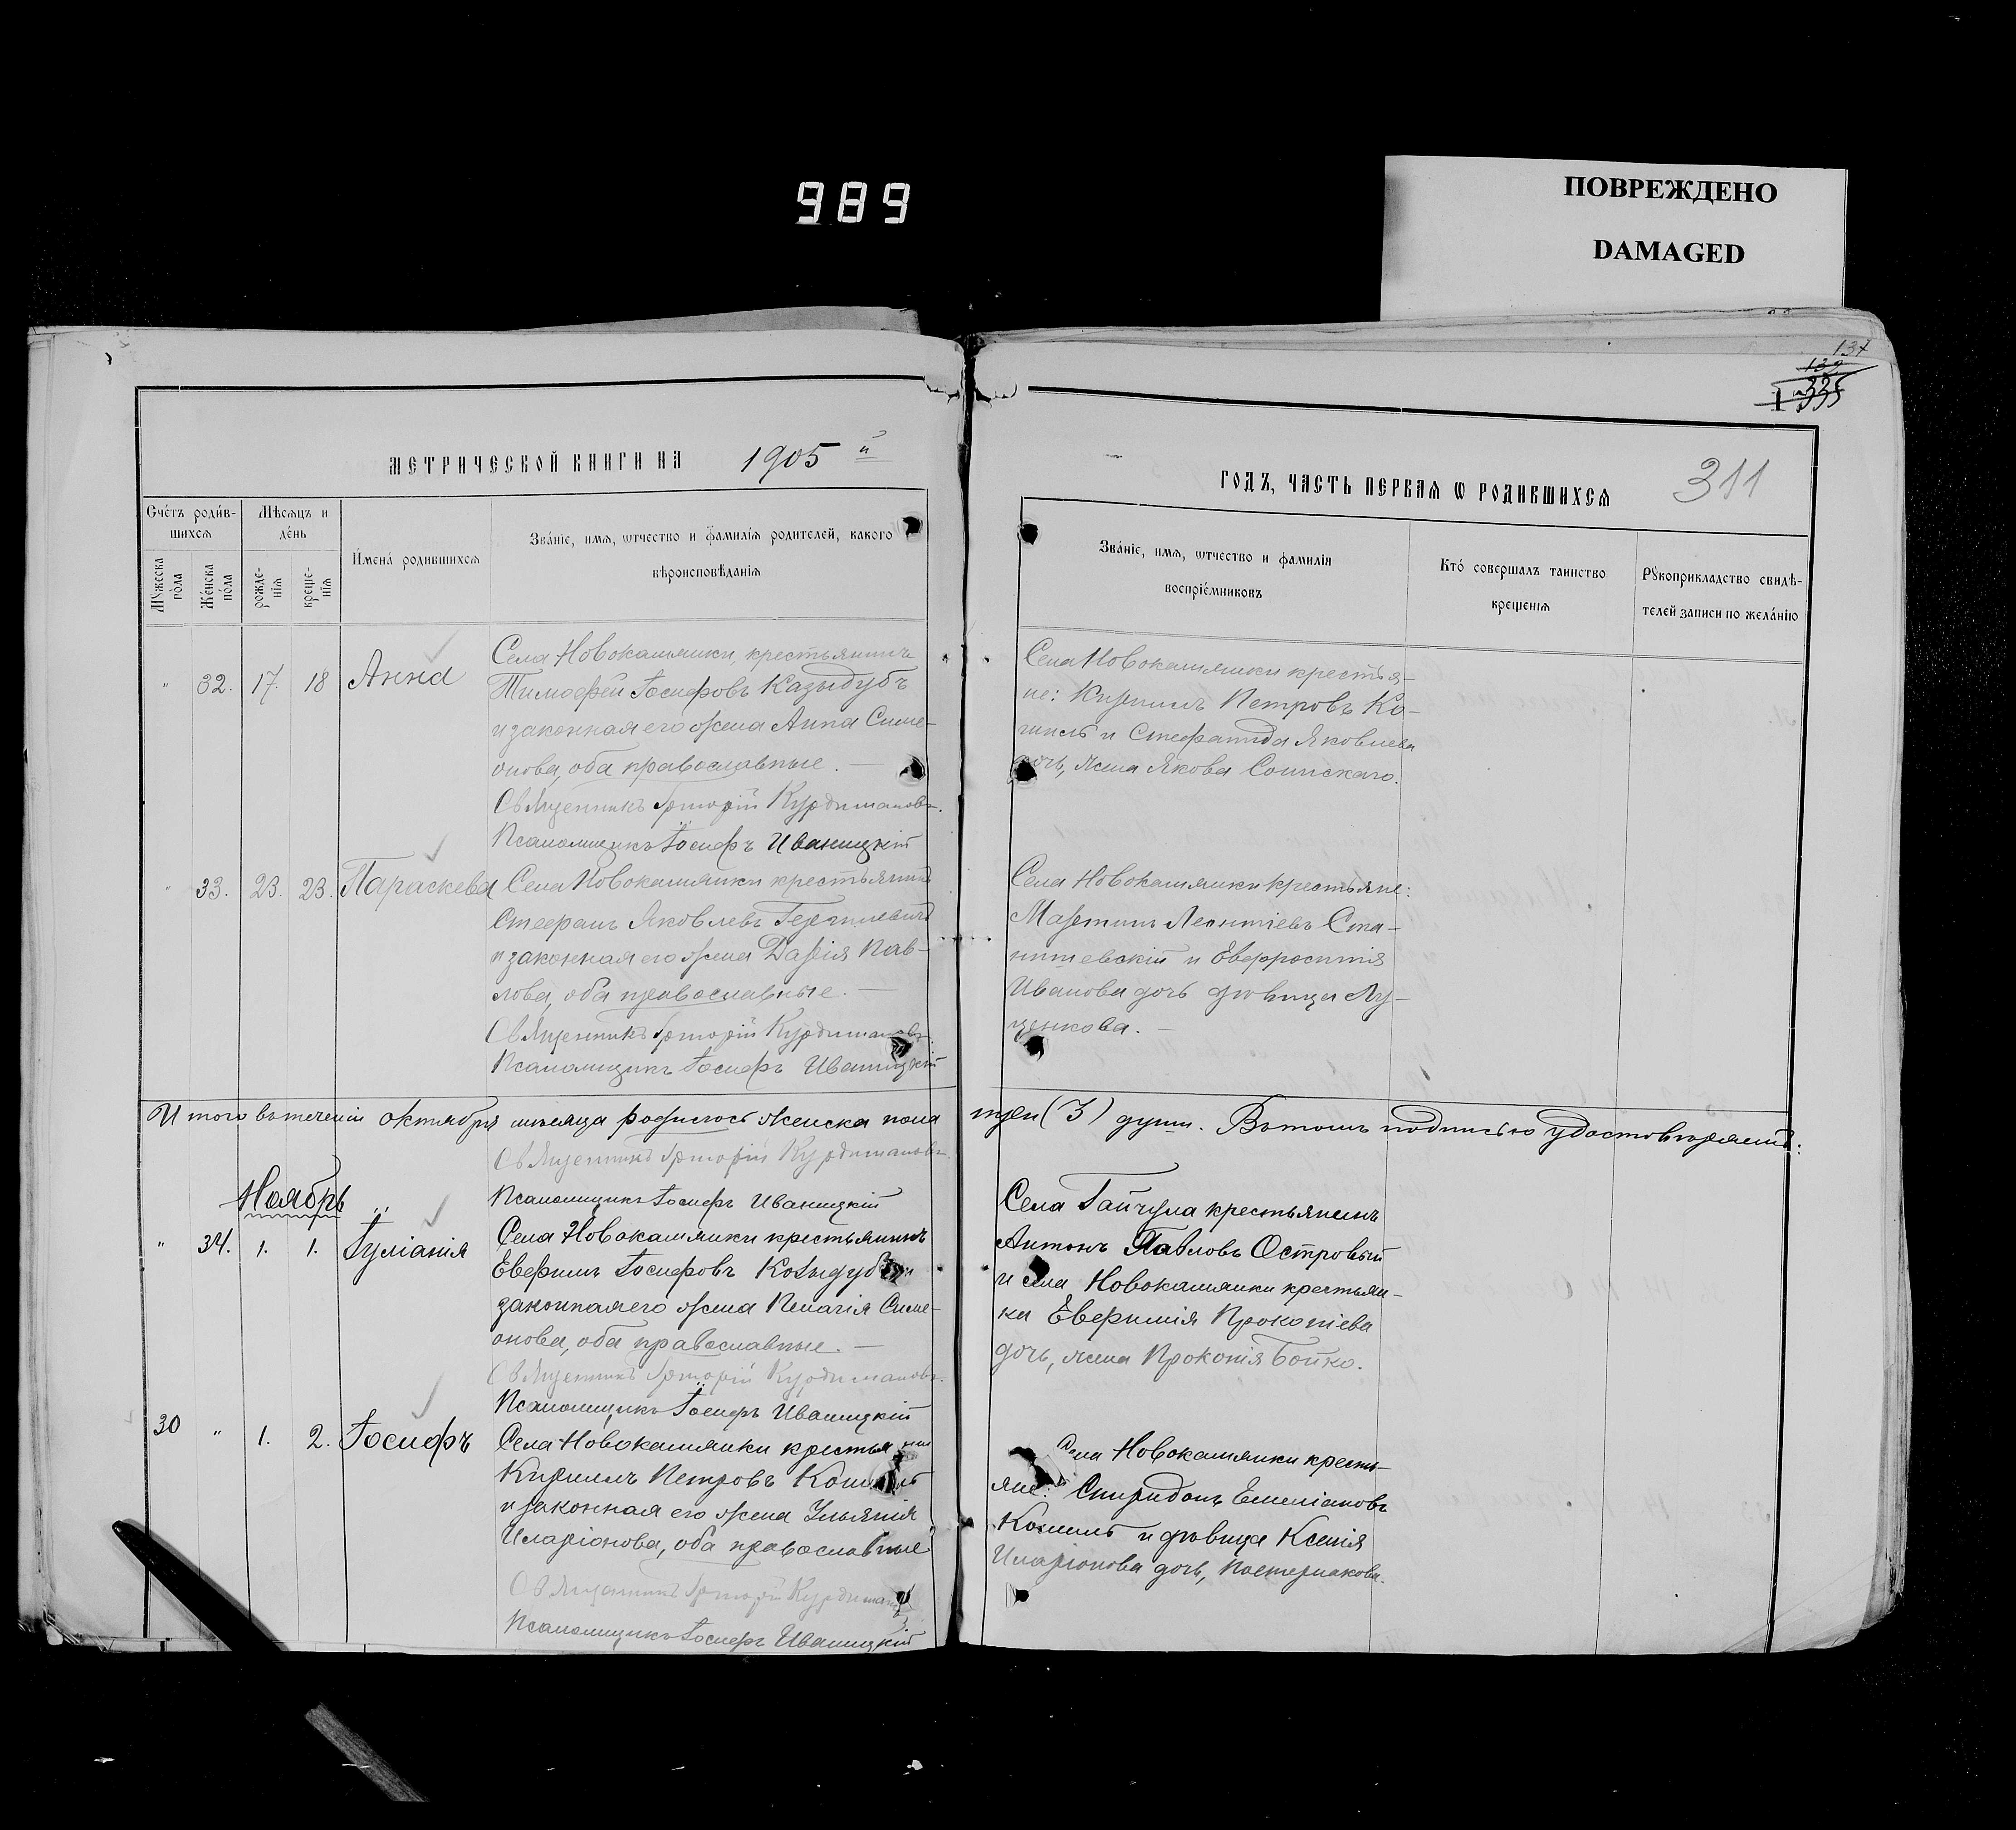 989
ПОВРЕЖДЕНО
DAMAGED
137
МЕТРИЧЕСКОЙ КНИГИ НА 1905 й
ГОДЪ, ЧАСТЬ ПЕРВАЯ Ѡ РОДИВШИХСЯ
311
Счетъ родив-
шихся
Мѣсяцъ и
день
Мужеска
пола
Женска
пола
рожде-
нія
креще-
нія
Имена родившихся
Званіе, имя, ѿчество и фамилія родителей, какого
вѣроисповѣданія
Званіе, имя, ѿчество и фамилія
воспріемниковъ
Кто совершалъ таинство
крещенія
Рукоприкладство свидѣ-
телей записи по желанію
" 32. 17. 18 Анна
Села Новокамянки, крестьянинъ
Тимофей Іосифовъ Казыдубъ
и законная его жена Анна Симе-
онова, оба православные. —
Священникъ Григорій Курдимановъ.
Псаломщикъ Іосифъ Иваницкій
Села Новокамянки крестья-
не: Кириллъ Петровъ Ко-
и Стефанида Яковлева
дочь, жена Якова
" 33. 23. 23. Параскева
Села Новокамянки крестьянинъ
Стефанъ Яковлевъ
и законная его жена Дарія Пав-
лова, оба православные. —
Священникъ Григорій Курдимановъ.
Псаломщикъ Іосифъ Иваницкій
Села Новокамянки крестьяне:
Мартинъ Леонтіевъ Ста-
нишевскій и Евфросинія
Иванова дочь дѣвица Лу-
ценкова. —
Итого въ теченіи октября мѣсяца родилось женска пола
три (3) души. Въ томъ подписью удостовѣряемъ:
Священникъ Григорій Курдимановъ.
Псаломщикъ Іосифъ Иваницкій
Ноябрь
" 34. 1. 1. Іуліанія
Села Новокамянки крестьянинъ
Евфимъ Іосифовъ Козыдубъ и
законная его жена Пелагія Симе-
онова, оба православные. —
Священникъ Григорій Курдимановъ.
Псаломщикъ Іосифъ Иваницкій
Села Гайчула крестьянинъ
Антонъ Павловъ Островый
и села Новокамянки крестьян-
ка Евфимія Прокопіева
дочь, жена Прокопія Бойко.
30 " 1. 2. Іосифъ
Села Новокамянки крестьянин
Кириллъ Петровъ
и законная его жена Ульянія
Иларіонова, оба православные
Священникъ Григорій Курдиманов
Псаломщикъ Іосифъ Иваницкій
Села Новокамянки кресть-
яне: Спиридонъ Емеліановъ
и дѣвица Ксенія
Иларіонова дочь, Пастернакова.